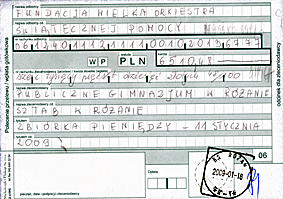 nazwa odbiorcy
FUNDACJA WIELKA ORKIESTRA
nazwa odbiorcy cd.
ŚWIĄTECZNEJ POMOCY
06 1240 1112 1111 0010 2013 6777
WP PLN 6510,48
sześć tysięcy pięćset dziesięć złotych 48/100
PUBLICZNE GIMNAZJUM W RÓŻANIE
SZTAB W RÓŻANIE
ZBIÓRKA PIENIĘDZY - 11 STYCZNIA
2009
06
2009-01-16
Polecenie przelewu / wpłata gotówkowa
odcinek dla zleceniodawcy